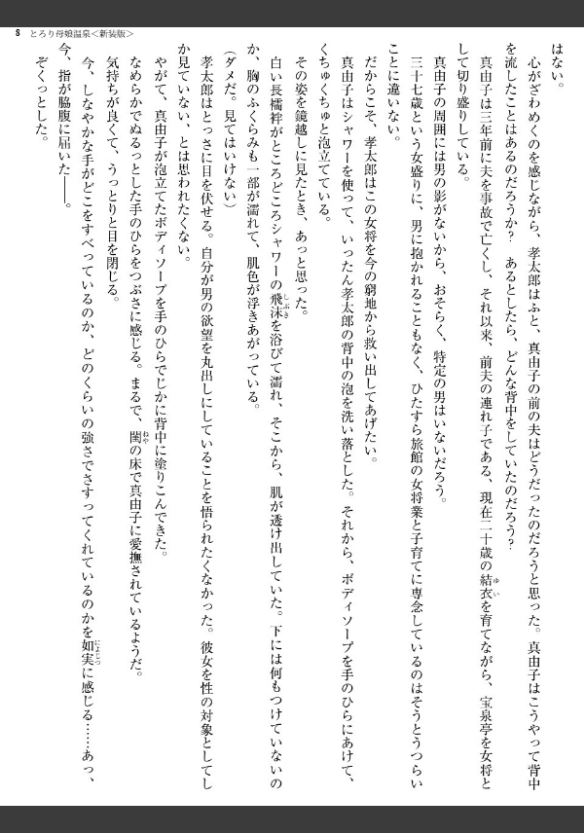 8 とろり母娘温泉＜新装版＞
はない。
　心がざわめくのを感じながら、孝太郎はふと、真由子の前の夫はどうだったのだろうと思った。真由子はこうやって背中
を流したことはあるのだろうか？　あるとしたら、どんな背中をしていたのだろう？
　真由子は三年前に夫を事故で亡くし、それ以来、前夫の連れ子である、現在二十歳の結衣ゆいを育てながら、宝泉亭を女将と
して切り盛りしている。
　真由子の周囲には男の影がないから、おそらく、特定の男はいないだろう。
　三十七歳という女盛りに、男に抱かれることもなく、ひたすら旅館の女将業と子育てに専念しているのはそうとうつらい
ことに違いない。
　だからこそ、孝太郎はこの女将を今の窮地から救い出してあげたい。
　真由子はシャワーを使って、いったん孝太郎の背中の泡を洗い落とした。それから、ボディソープを手のひらにあけて、
くちゅくちゅと泡立てている。
　その姿を鏡越しに見たとき、あっと思った。
　白い長襦袢がところどころシャワーの飛沫しぶきを浴びて濡れ、そこから、肌が透け出していた。下には何もつけていないの
か、胸のふくらみも一部が濡れて、肌色が浮きあがっている。
（ダメだ。見てはいけない）
　孝太郎はとっさに目を伏せる。自分が男の欲望を丸出しにしていることを悟られたくなかった。彼女を性の対象としてし
か見ていない、とは思われたくない。
　やがて、真由子が泡立てたボディソープを手のひらでじかに背中に塗りこんできた。
　なめらかでぬるっとした手のひらをつぶさに感じる。まるで、閨ねやの床で真由子に愛撫されているようだ。
　気持ちが良くて、うっとりと目を閉じる。
　今、しなやかな手がどこをすべっているのか、どのくらいの強さでさすってくれているのかを如実にょじつに感じる……あっ、
今、指が脇腹に届いた――。
　ぞくっとした。